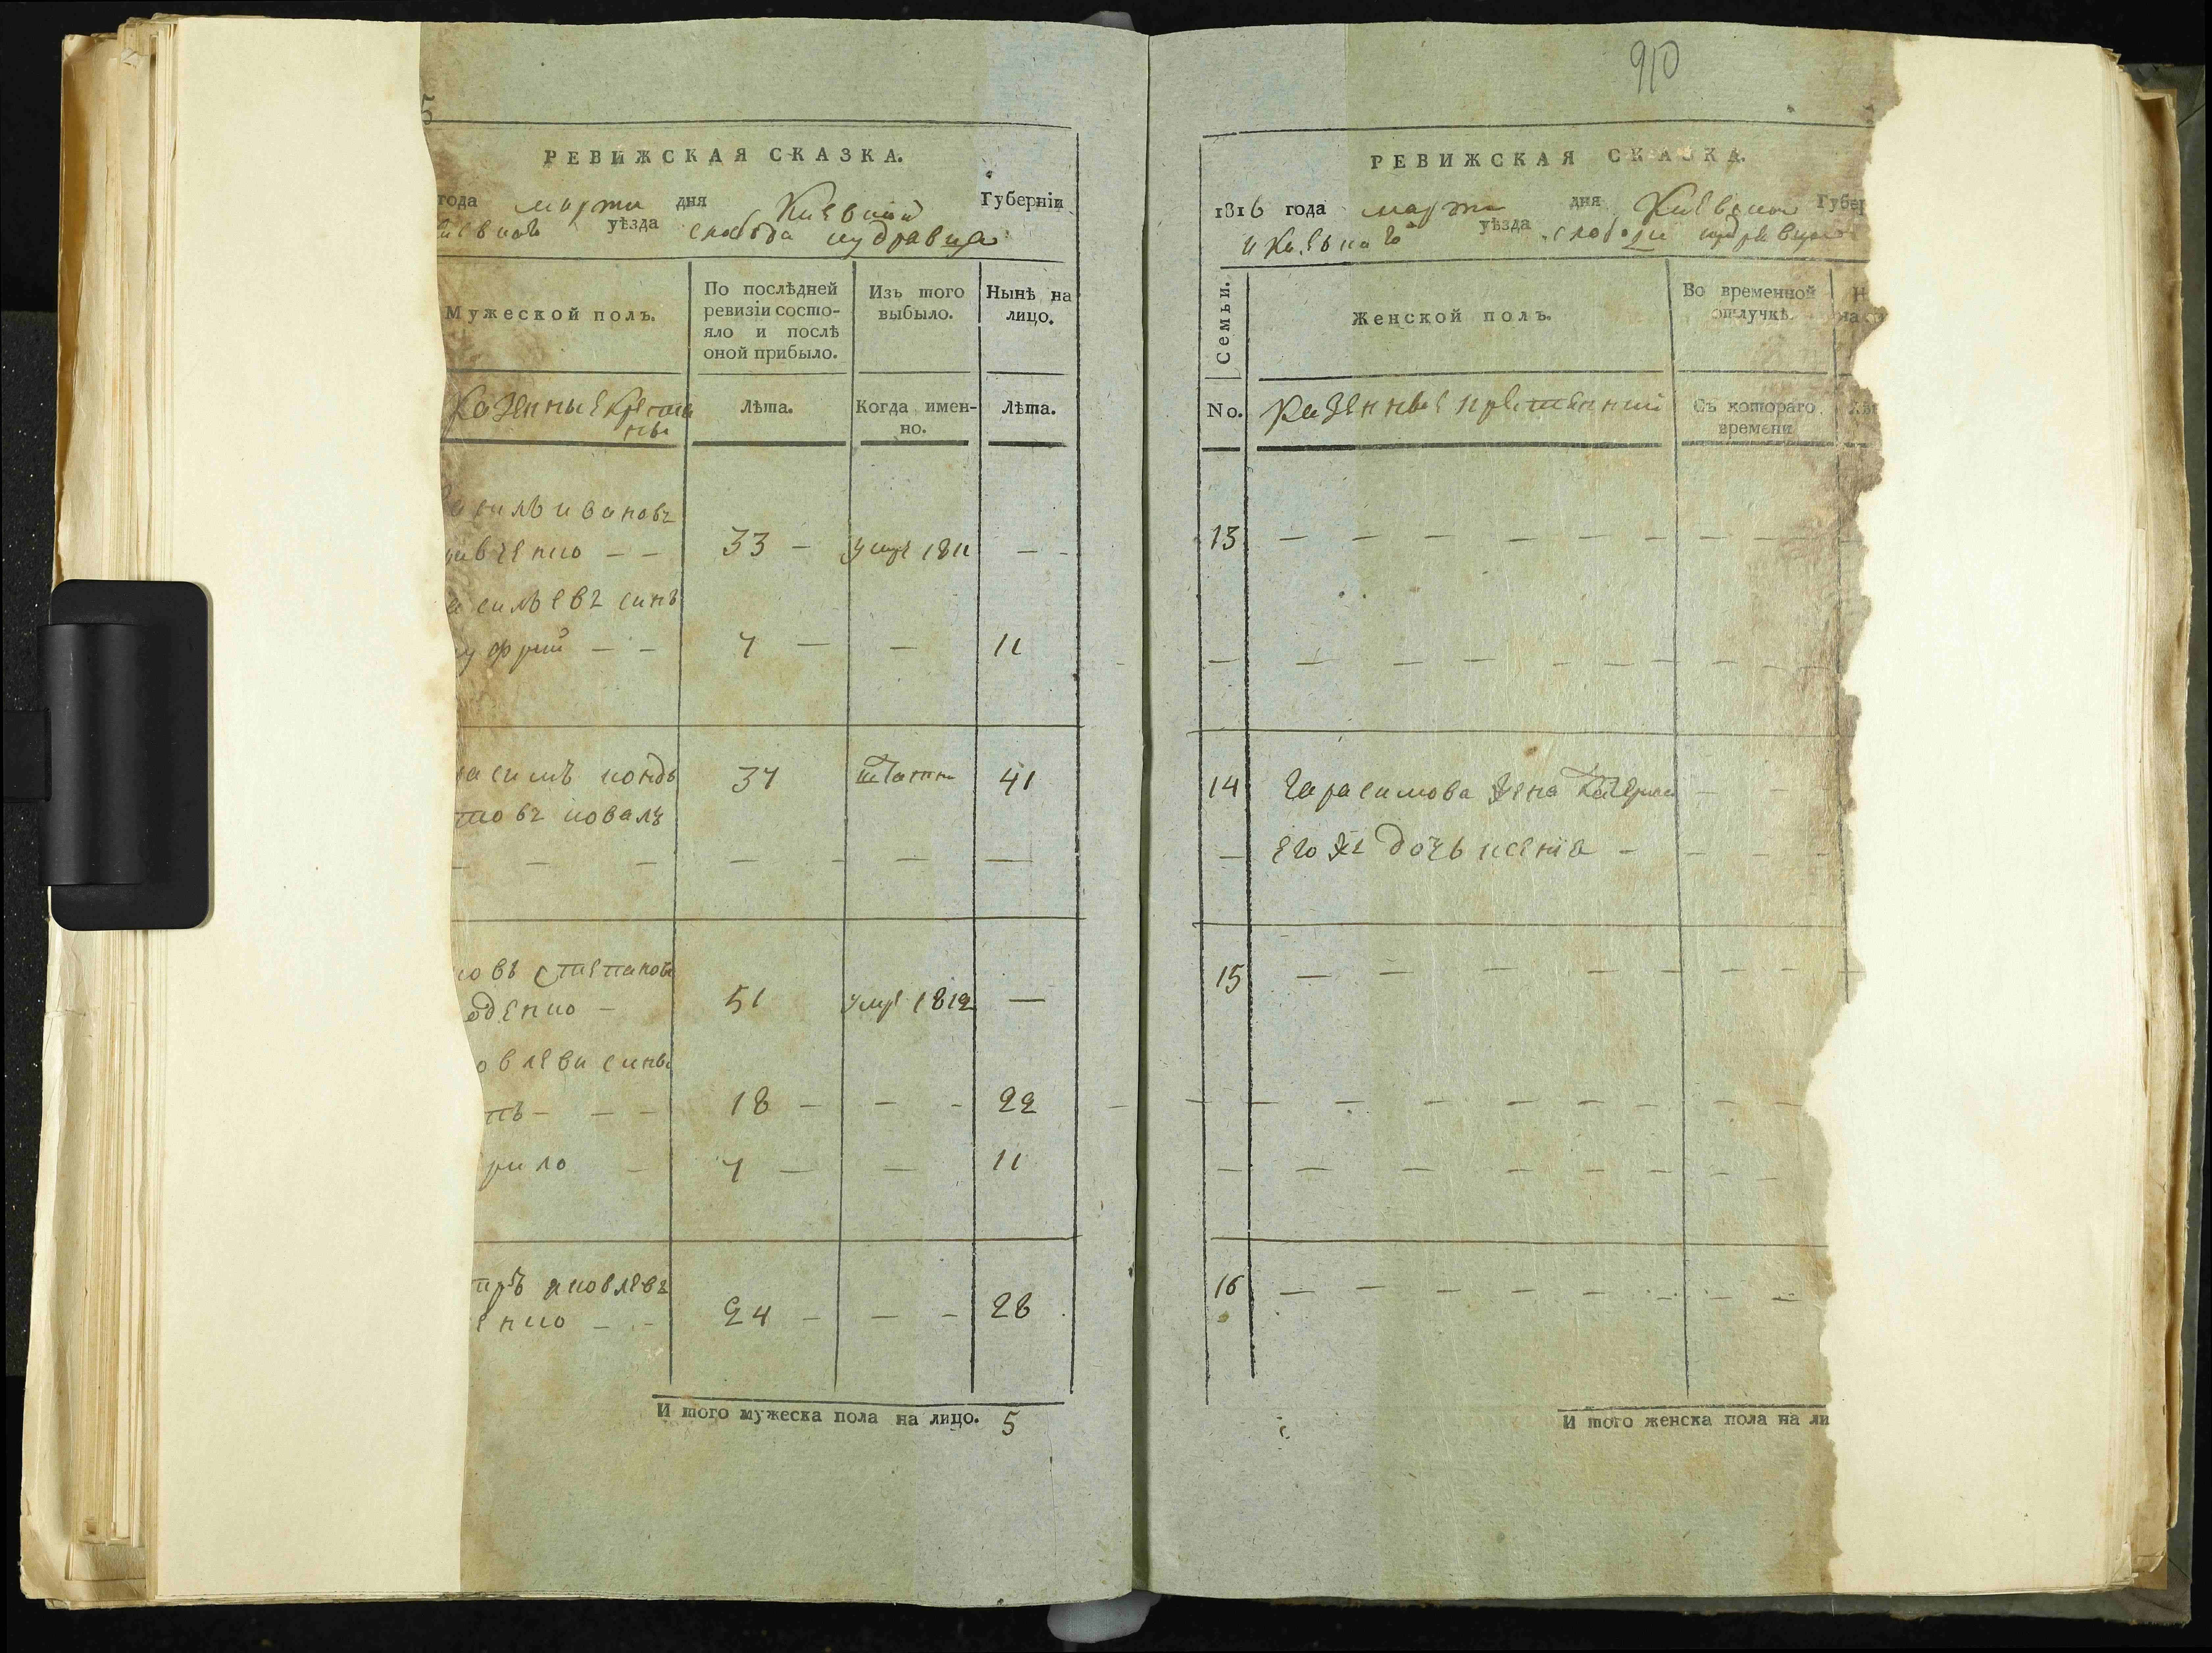 5
РЕВИЖСКАЯ СКАЗКА.
года марта дня Киевской Губернїи
уѣзда слобода кудравца
Мужеской полъ.
По послѣдней ревизїи состо-
яло и послѣ
оной прибыло.
Изъ того выбыло.
Нынѣ на лицо.
Казенные Крестя
не
Лѣта.
Когда имен-
но.
Лѣта.
силь ивановъ
вченко – – 33 – умре 1811 – –
асильевъ синъ
уфрий – – 7 – – 11
расимъ кондъ 37 41
товъ ковалъ
– – – – – – –
ковъ степановъ
денко – 51 умре 1812 –
овлеви сины
пъ – – – 18 – – – 22
рило – 7 – – 11
тръ яковлевъ
енко – – 24 – – – 28
И того мужеска пола на лицо. 5
910
РЕВИЖСКАЯ СКАЗКА.
1816 года марта дня Киевской Губер
уѣзда слободи
Семьи.
Женской полъ.
Во временной отлучкѣ.
Н
на
No.
Казенные
Съ котораго времени
13 – – – – – – – – –
– – – – – – – – –
14 Гарасимова жена – –
– его же дочь ксенїа – – – –
15 – – – – – – –
– – – – – – – – –
– – – – – – – –
16 – – – – – – – –
И того женска пола на ли